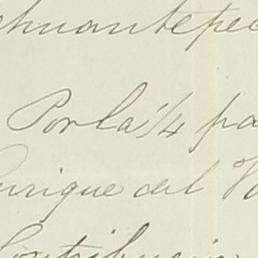 ehuantepec
Por la 1/4 pa
Enrique del V
Contribucion